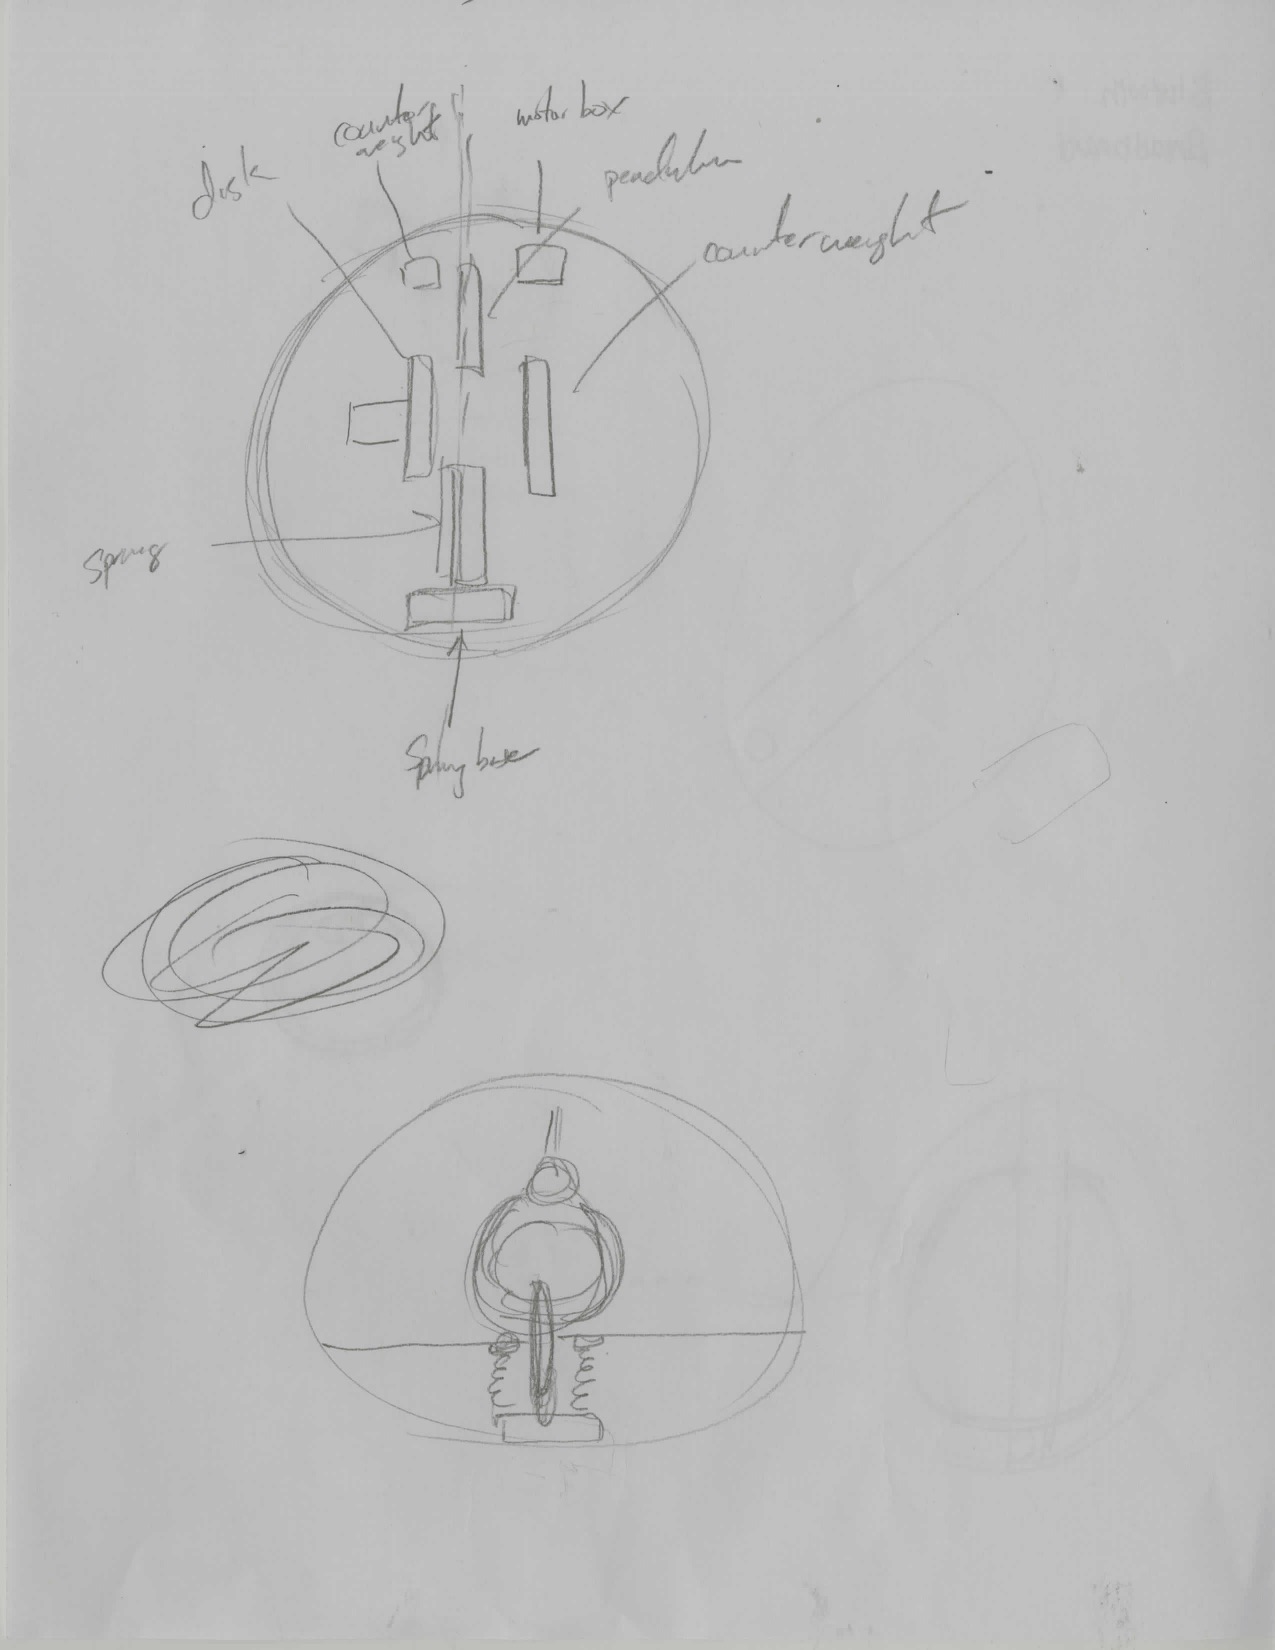 counter
weight
motor box
disk
pendulum
counterweight
Spring
Spring base